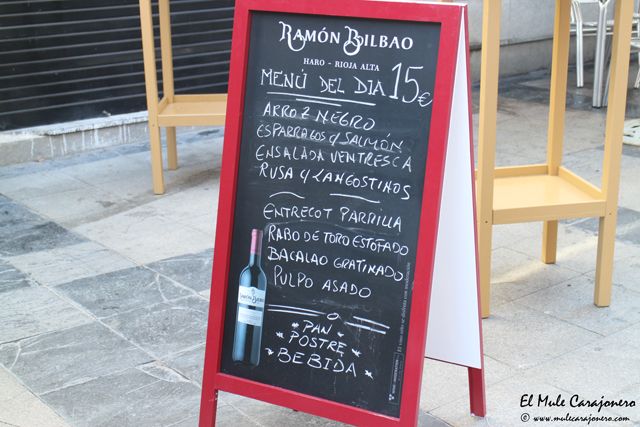 RAMÓN BILBAO
HARO - RIOJA ALTA
MENÚ DEL DIA 15€
ARROZ NEGRO
ESPARRAGOS Y SALMÓN
ENSALADA VENTRESCA
RUSA Y LANGOSTINOS
ENTRECOT PARRILLA
RABO DE TORO ESTOFADO
BACALAO GRATINADO
PULPO ASADO
RAMÓN BILBAO
PAN
POSTRE
BEBIDA
El Mule Carajonero
© www.mulecarajonero.com